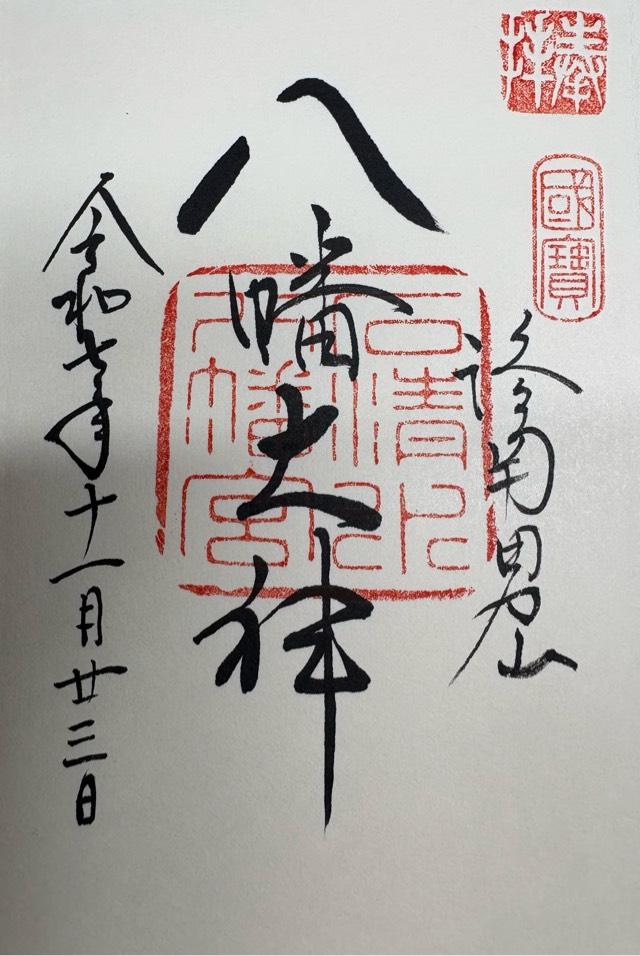 奉拝
國寶
洛南男山
八幡大神
石清水
八幡宮
令和七年十一月廿三日